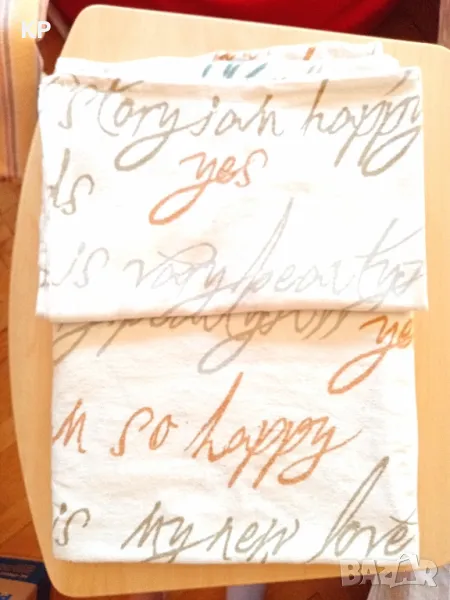 NP
story i am happy
ds
yes
is vary beauty
ye
m so happy
is my new love
BAZAR